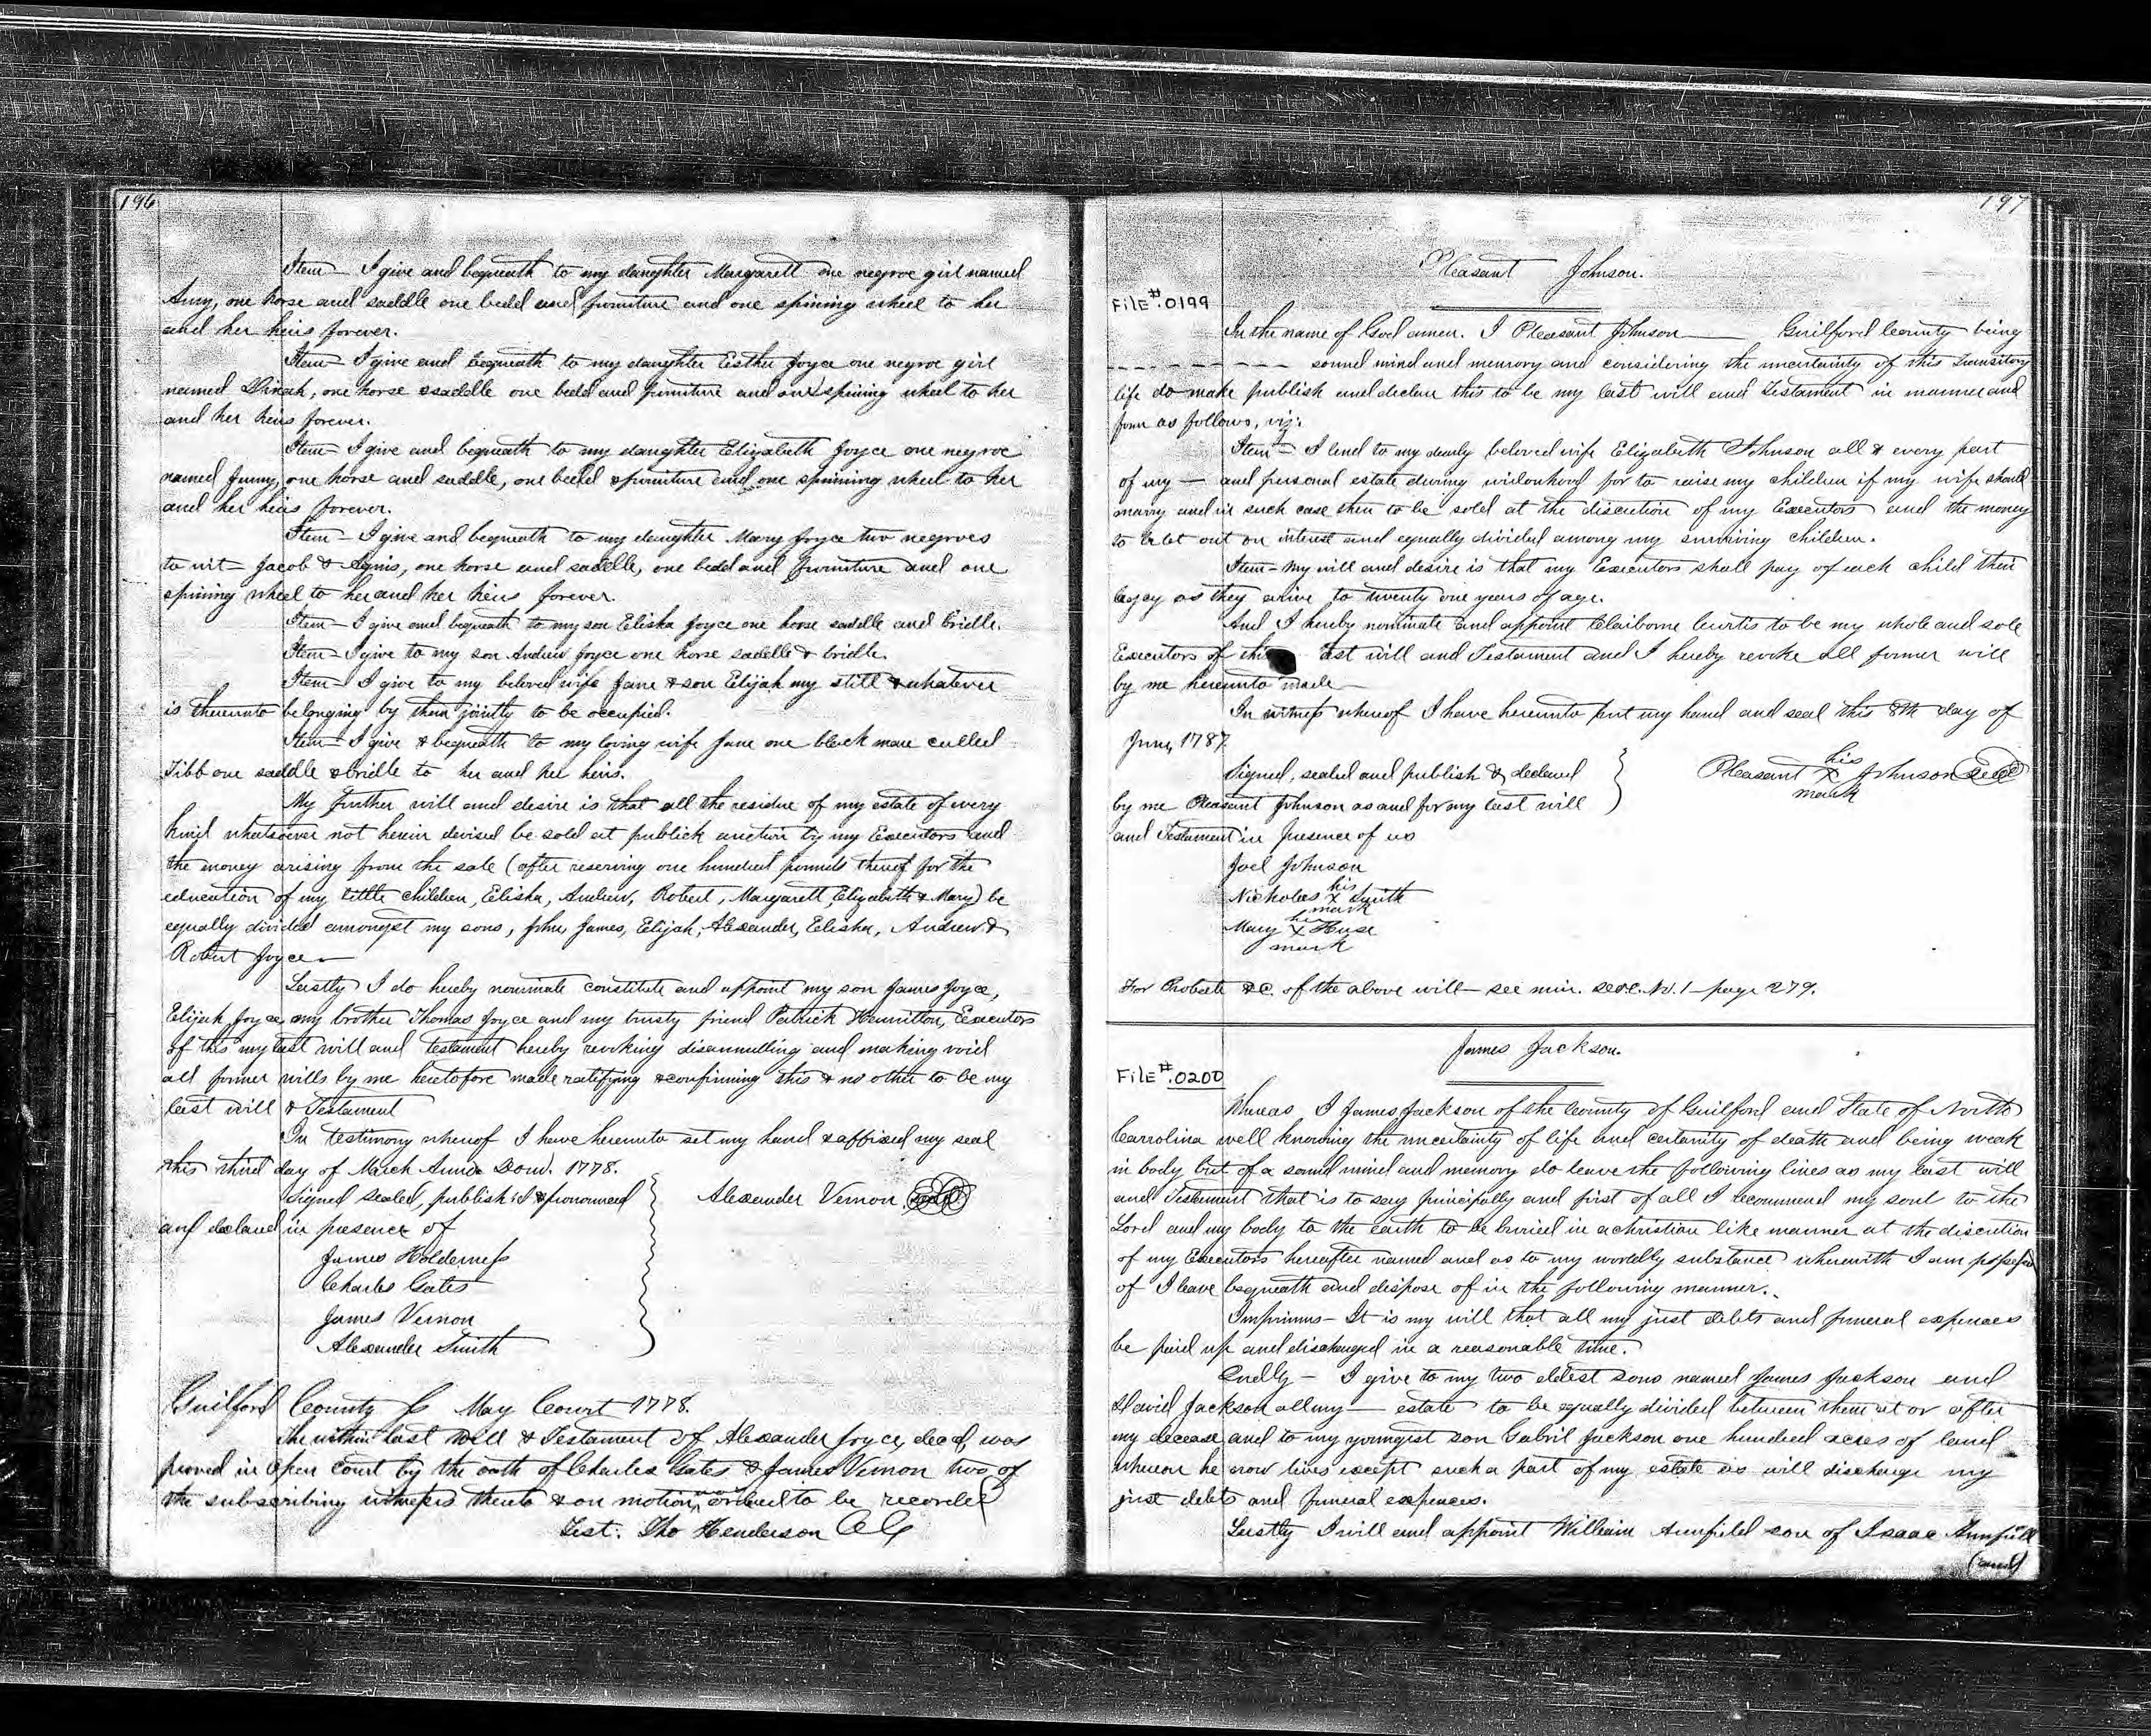 196
Item - I give and bequeath to my daughter Margarett one negroe girl named
Amy, one horse and saddle one bedd and furniture and one spining wheel to her
and her heirs forever.
Item - I give and bequeath to my daughter Esther Joyce one negroe girl
named Dinah, one horse & saddle one bedd and furniture and one spining wheel to her
and her heirs forever.
Item - I give and bequeath to my daughter Elizabeth Joyce one negroe
named Junny, one horse and saddle, one bedd & furniture and one spinning wheel to her
and her heirs forever.
Item - I give and bequeath to my daughter Mary Joyce two negroes
to wit - Jacob & Agnis, one horse and saddle, one bedd and furniture and one
spining wheel to her and her heirs forever.
Item - I give and bequeath to my son Elisha Joyce one horse saddle and bridle.
Item - I give to my son Andrew Joyce one horse saddle & bridle.
Item - I give to my beloved wife Jane & son Elijah my still & whatever
is thereunto belonging by them jointly to be occupied.
Item - I give & bequeath to my loving wife Jane one black mare called
Tibb one saddle & bridle to her and her heirs.
My further will and desire is that all the residue of my estate of every
kind whatsoever not herein devised be sold at publick auction by my Executors and
the money arising from the sale (after reserving one hundred pounds thereof for the
education of my little children, Elisha, Andrew, Robert, Margarett, Elizabeth & Mary) be
equally divided amongst my sons, John, James, Elijah, Alexander, Elisha, Andrew &
Robert Joyce -
Lastly I do hereby nominate constitute and appoint my son James Joyce,
Elijah Joyce, my brother Thomas Joyce and my trusty friend Patrick Hamilton, Executors
of this my last will and testament hereby revoking disannulling and making void
all former wills by me heretofore made ratifying & confirming this & no other to be my
last will & Testament
In testimony whereof I have hereunto set my hand & affixed my seal
this third day of March Anno Dom. 1778.
Signed sealed, published & pronounced } Alexander Vernon. seal
and declared in presence of
James Holderness
Charles Gates
James Vernon
Alexander Smith
Guilford County Ss May Court 1778.
The within last will & Testament of Alexander Joyce, decd, was
proved in Open Court by the oath of Charles Gates & James Vernon two of
the subscribing witnesses thereto & on motion was ordered to be recorded
Test. Tho Henderson CC
197
Pleasant Johnson.
File #.0199
In the name of God amen. I Pleasant Johnson —— Guilford County being
- - - - - - - - - - sound mind and memory and considering the uncertainty of this transitory
life do make publish and declare this to be my last will and Testament in manner and
form as follows, viz:
Item - I lend to my dearly beloved wife Elizabeth Johnson all & every part
of my — and personal estate during widowhood for to raise my children if my wife should
marry and in such case then to be sold at the discretion of my Executors and the money
to be let out on interest and equally divided among my surviving children.
Item - My will and desire is that my Executors shall pay of each child their
legacy as they arive to twenty one years of age.
And I hereby nominate and appoint Claiborne Curtis to be my whole and sole
Executors of this last will and Testament and I hereby revoke all former will
by me hereunto made -
In witness whereof I have hereunto put my hand and seal this 8th day of
June, 1787.
Signed, sealed and publish & declared } Pleasant his X mark Johnson seal
by me Pleasant Johnson as and for my last will
and Testament in presence of us
Joel Johnson
Nicholas his X mark Smith
Mary her X mark Huse
For Probate &c. of the above will - see min. docc. No. 1 - page 279.
James Jackson.
File #.0200
Whereas, I James Jackson of the County of Guilford and State of North
Carrolina well knowing the uncertainty of life and certanity of death and being weak
in body but of a sound mind and memory do leave the following lines as my last will
and Testament that is to say principally and first of all I recommend my soul to the
Lord and my body to the earth to be buried in a christian like manner at the discretion
of my Executors hereafter named and as to my worldly substance wherewith I am possessed
of I leave bequeath and dispose of in the following manner.
Imprimus - It is my will that all my just debts and funeral expences
be paid up and discharged in a reasonable time.
2ndly - I give to my two eldest sons named James Jackson and
David Jackson all my — estate to be equally divided between them at or after
my decease and to my youngest son Gabril Jackson one hundred acres of land
whereon he now lives except such a part of my estate as will discharge my
just debts and funeral expences.
Lastly I will and appoint William Armfield son of Isaac Armfield